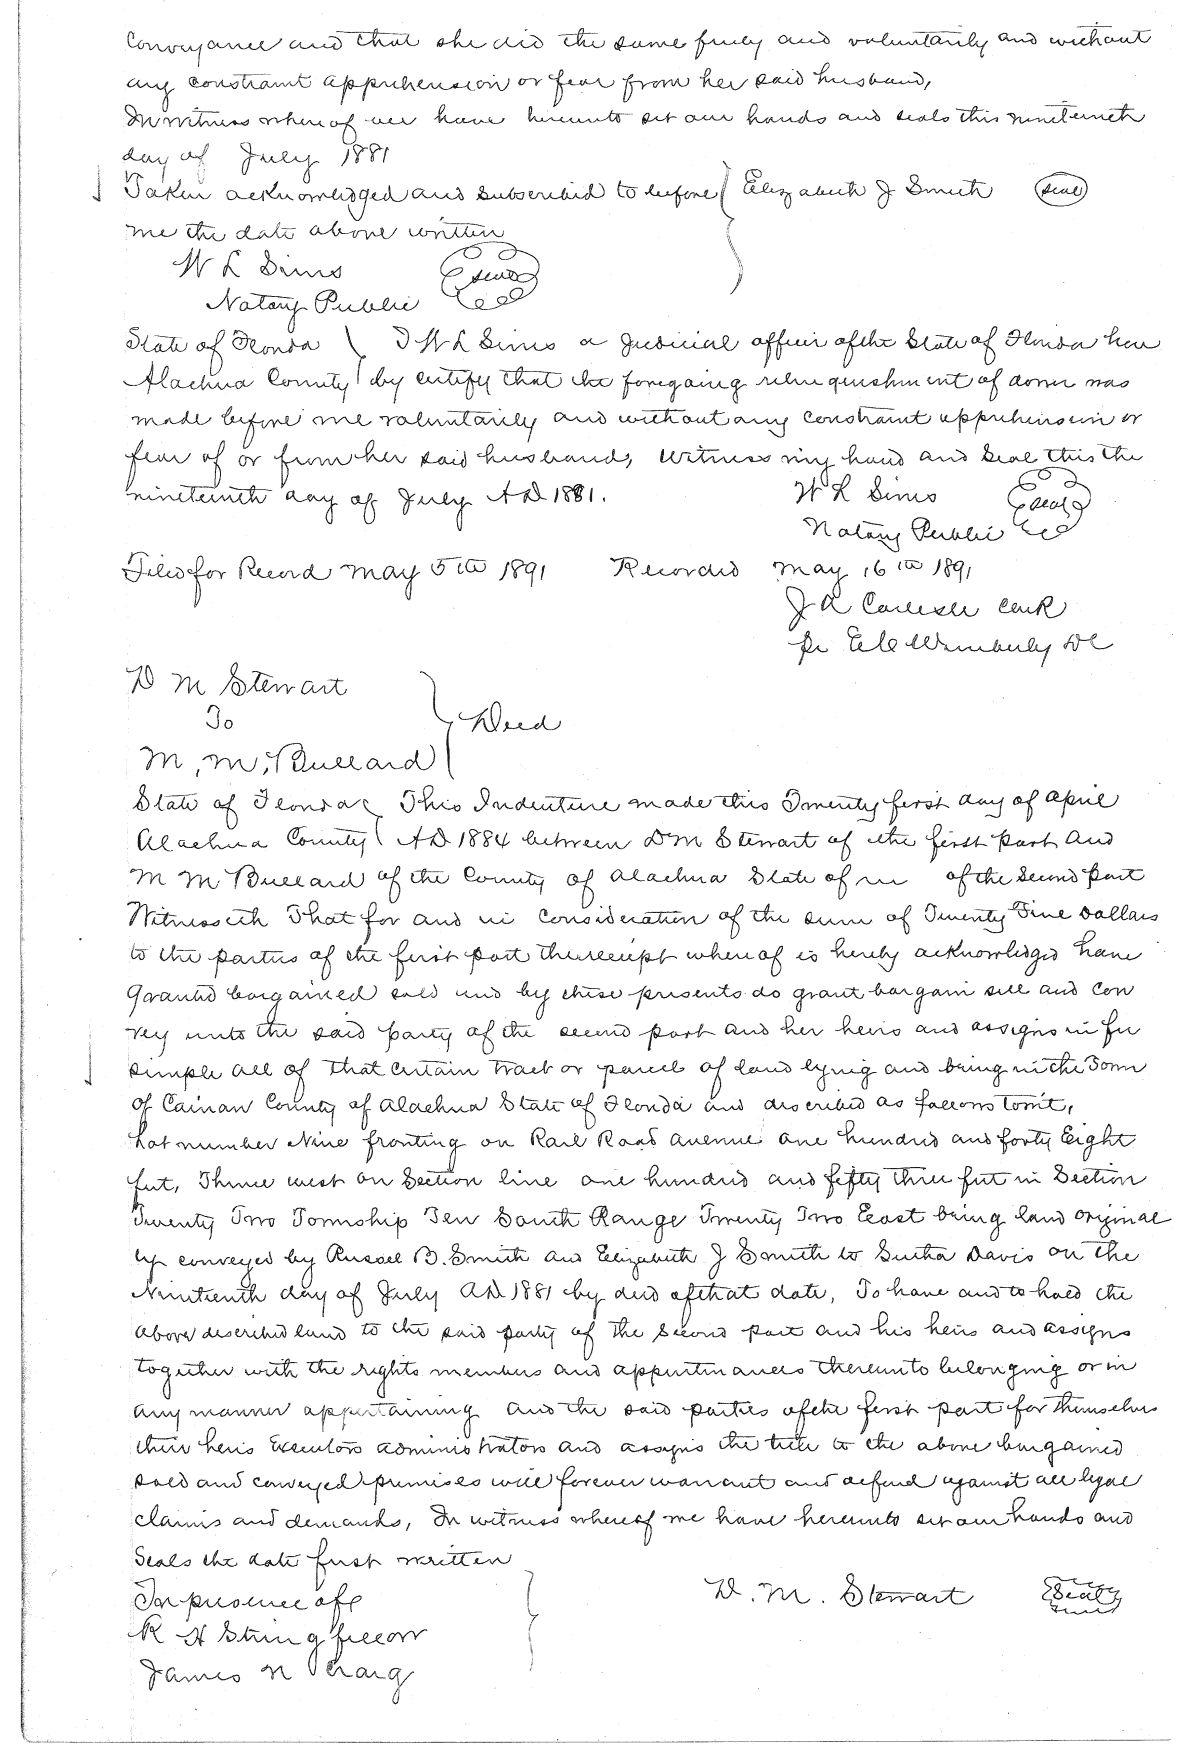 Conveyance and that she did the same freely and voluntarily and without
any constraint apprehension or fear from her said husband,
In witness where of we have hereunto set our hands and seals this nineteenth
day of July 1881
Taken acknowledged and subscribed to before Elizabeth J Smith seal
me the date above written
W L Sims seal
Notary Public
State of Florida I W L Sims a Judicial officer of the State of Florida here
Alachua County by certify that the foregoing relinquishment of dower was
made before me voluntarily and without any constraint apprehension or
fear of or from her said husband, Witness my hand and seal this the
nineteenth day of July AD 1881. W L Sims seal
Notary Public
Filed for Record May 5th 1891 Recorded May 16th 1891
J A Carlisle Clerk
pr Wimberly DC
D M Stewart
To Deed
M, M, Bullard
State of Florida This Indenture made this Twenty first day of April
Alachua County AD 1884 between D M Stewart of the first part and
M M Bullard of the County of Alachua State of of the second part
Witnesseth That for and in consideration of the sum of Twenty Five Dollars
to the parties of the first part the receipt where of is hereby acknowledged have
Granted bargained sold and by these presents do grant bargain sell and con
vey unto the said party of the second part and her heirs and assigns in fee
simple all of that certain tract or parcel of land lying and being in the Town
of Cainan County of Alachua State of Florida and described as follows towit,
Lot number Nine fronting on Rail Road avenue one hundred and forty Eight
feet, Thence west on Section line one hundred and fifty three feet in Section
Twenty Two Township Ten South Range Twenty Two East being land original
ly conveyed by Russel B. Smith and Elizabeth J Smith to Davis on the
Nineteenth day of July AD 1881 by deed of that date, To have and to hold the
above described land to the said party of the second part and his heirs and assigns
together with the rights members and appurtinances thereunto belonging or in
any manner appertaining And the said parties of the first part for themselves
their heirs Executors administrators and assigns the title to the above bargained
sold and conveyed premises will forever warrant and defend against all legal
claims and demands, In witness whereof we have hereunto set our hands and
seals the date first written
In presence of D. M. Stewart Seal
R H Stringfellow
James N Craig